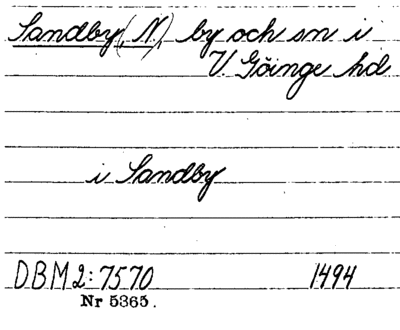 Sandby(, N), by och sn i
V. Göinge hd
i Sandby
DBM 2:7570 1494
Nr 5365.